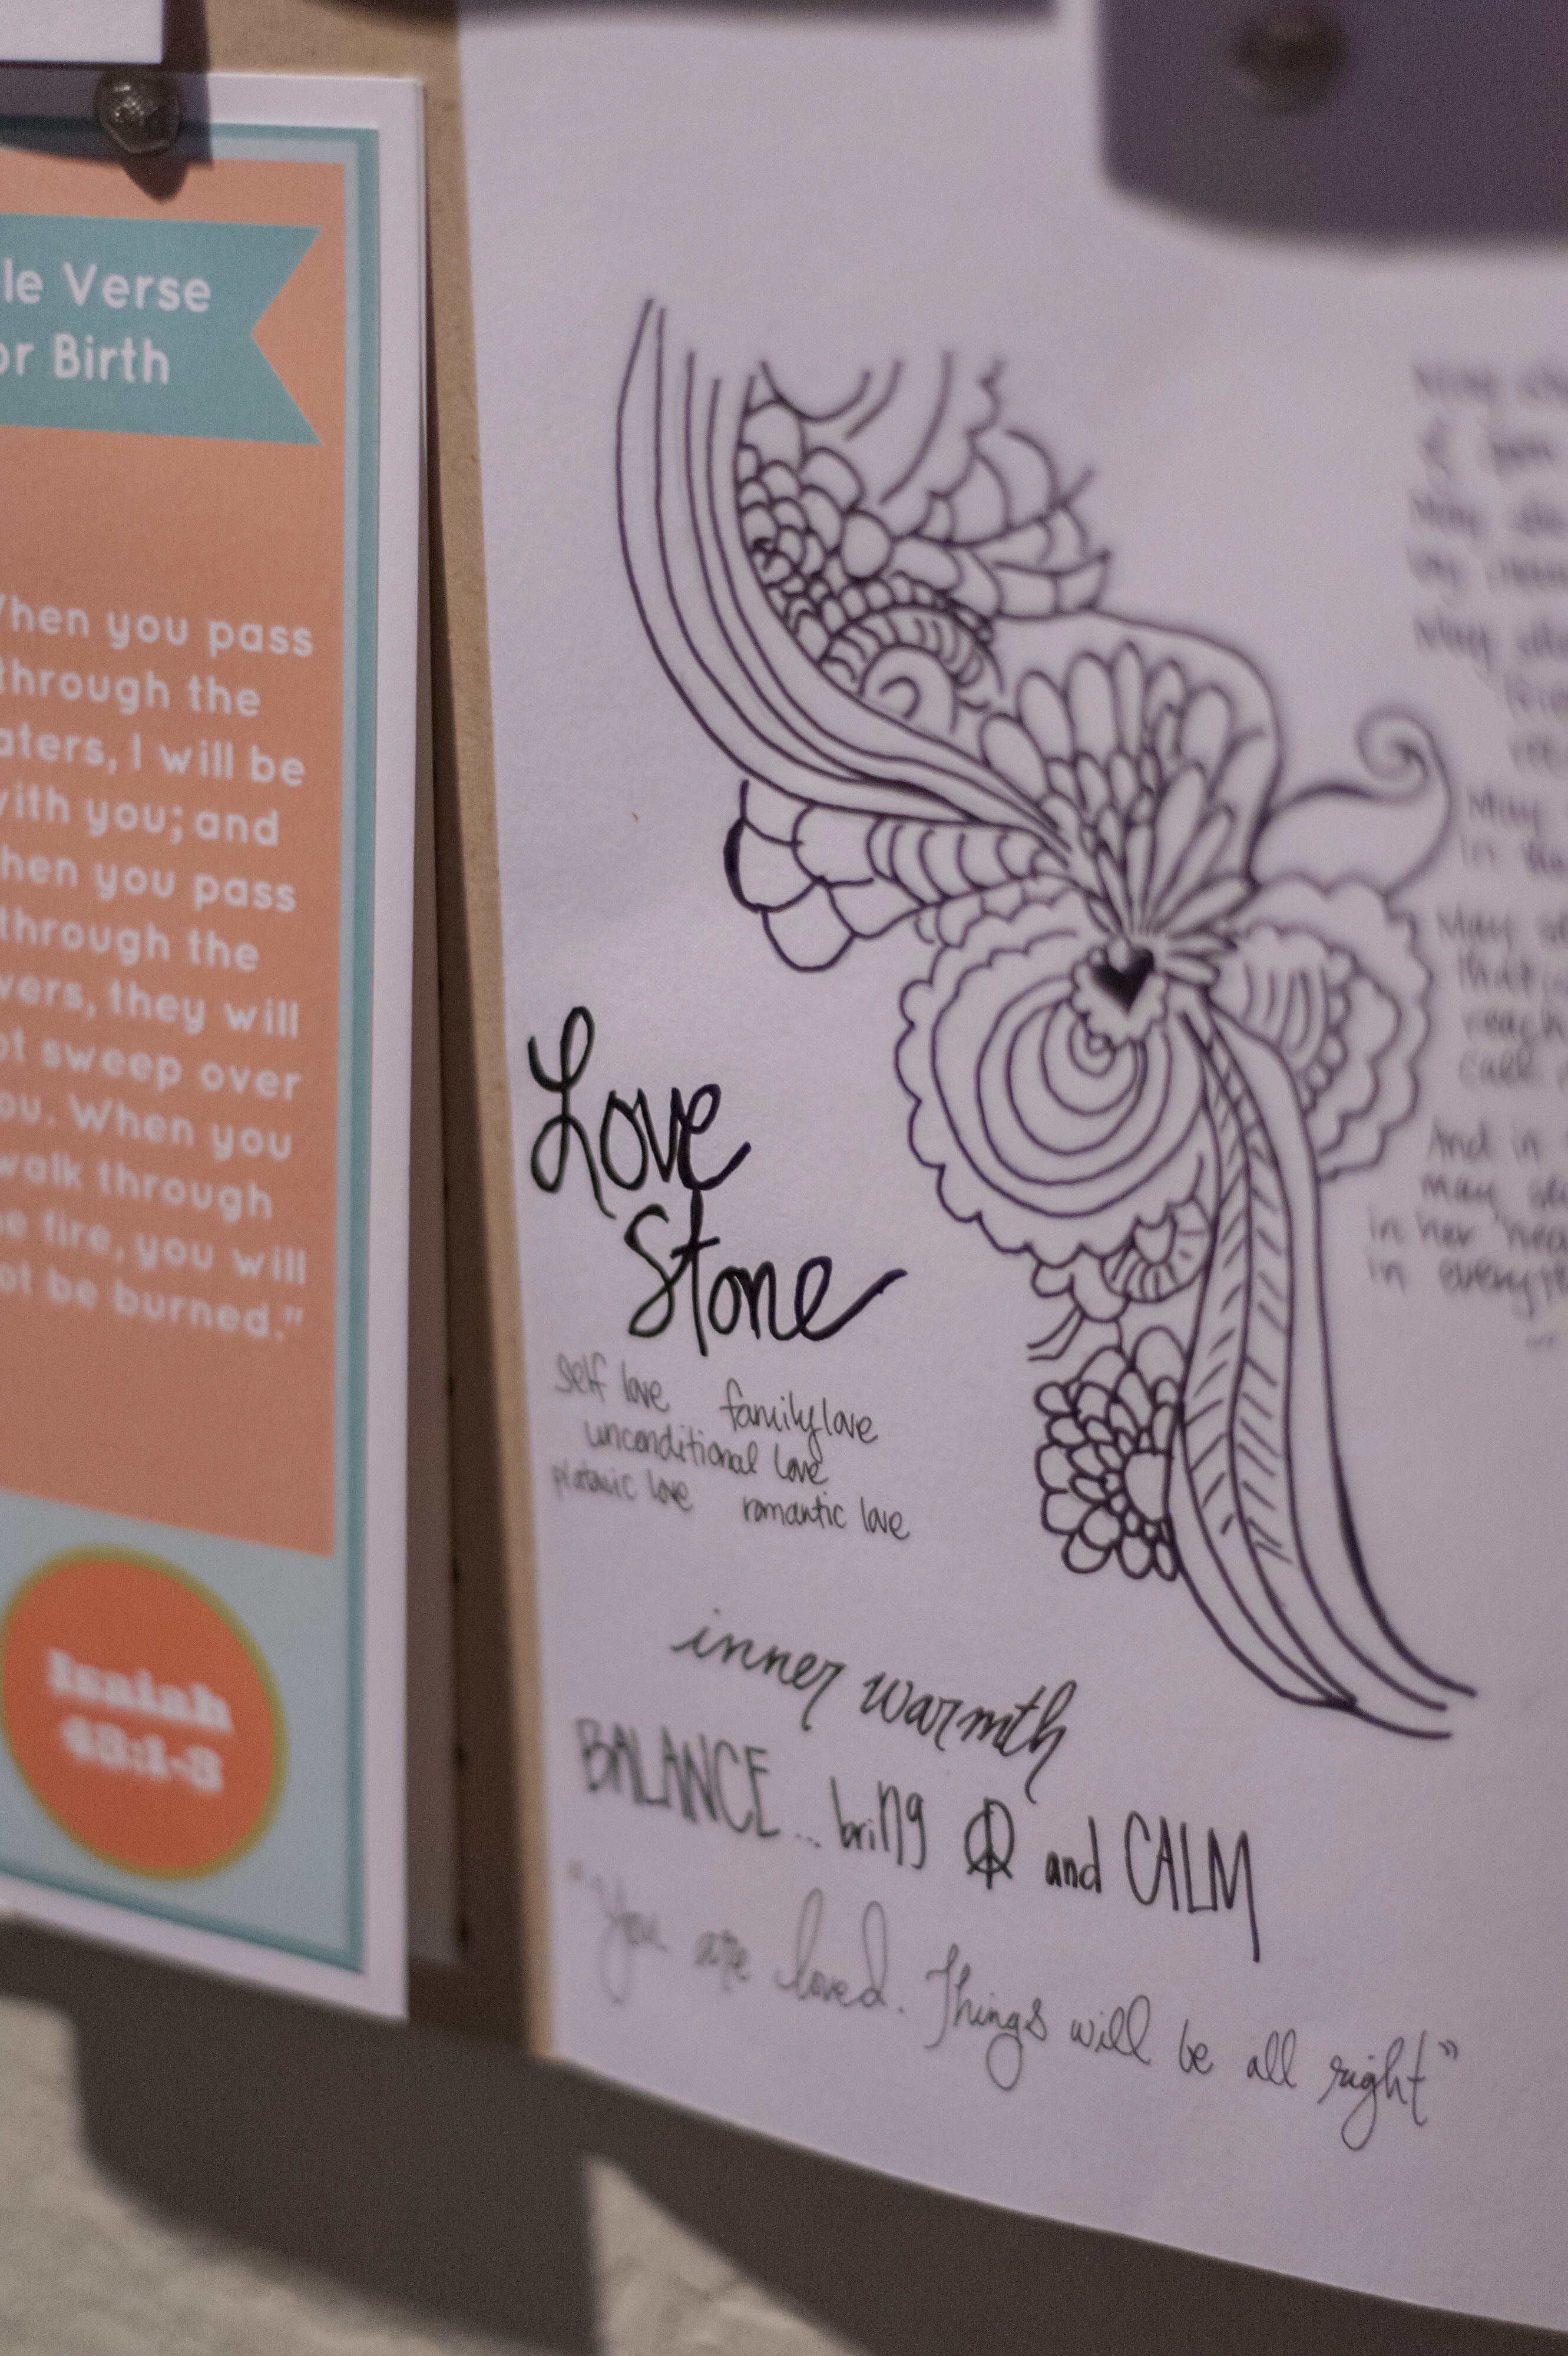 le Verse
or Birth
hen you pass
through the
aters, I will be
ith you; and
hen you pass
through the
vers, they will
ot sweep over
ou. When you
walk through
e fire, you will
ot be burned."
Isaiah
43:1-3
Love
Stone
self love familylove
unconditional love
platonic love romantic love
inner warmth
BALANCE... bring ☮ and CALM
"You are loved. Things will be all right"
May
May
May
May
in
May
that
reach
call
And in
may
in her
in